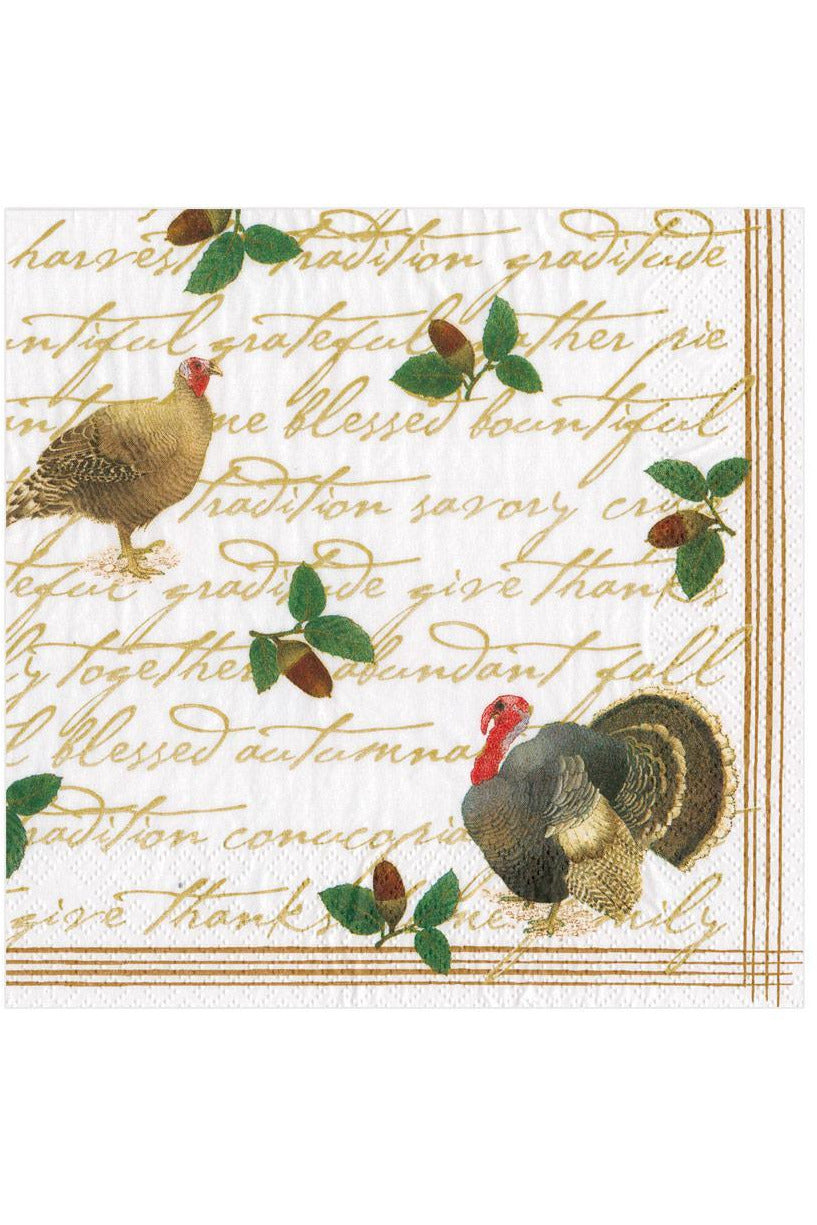 harvest tradition gradilude
ntiful grateful ather pie
me blessed bountiful
tradition savory cru
teful gradilude give thanks
ly together abundant fall
l blessed autumna
radition conucopia
give thanks me mily